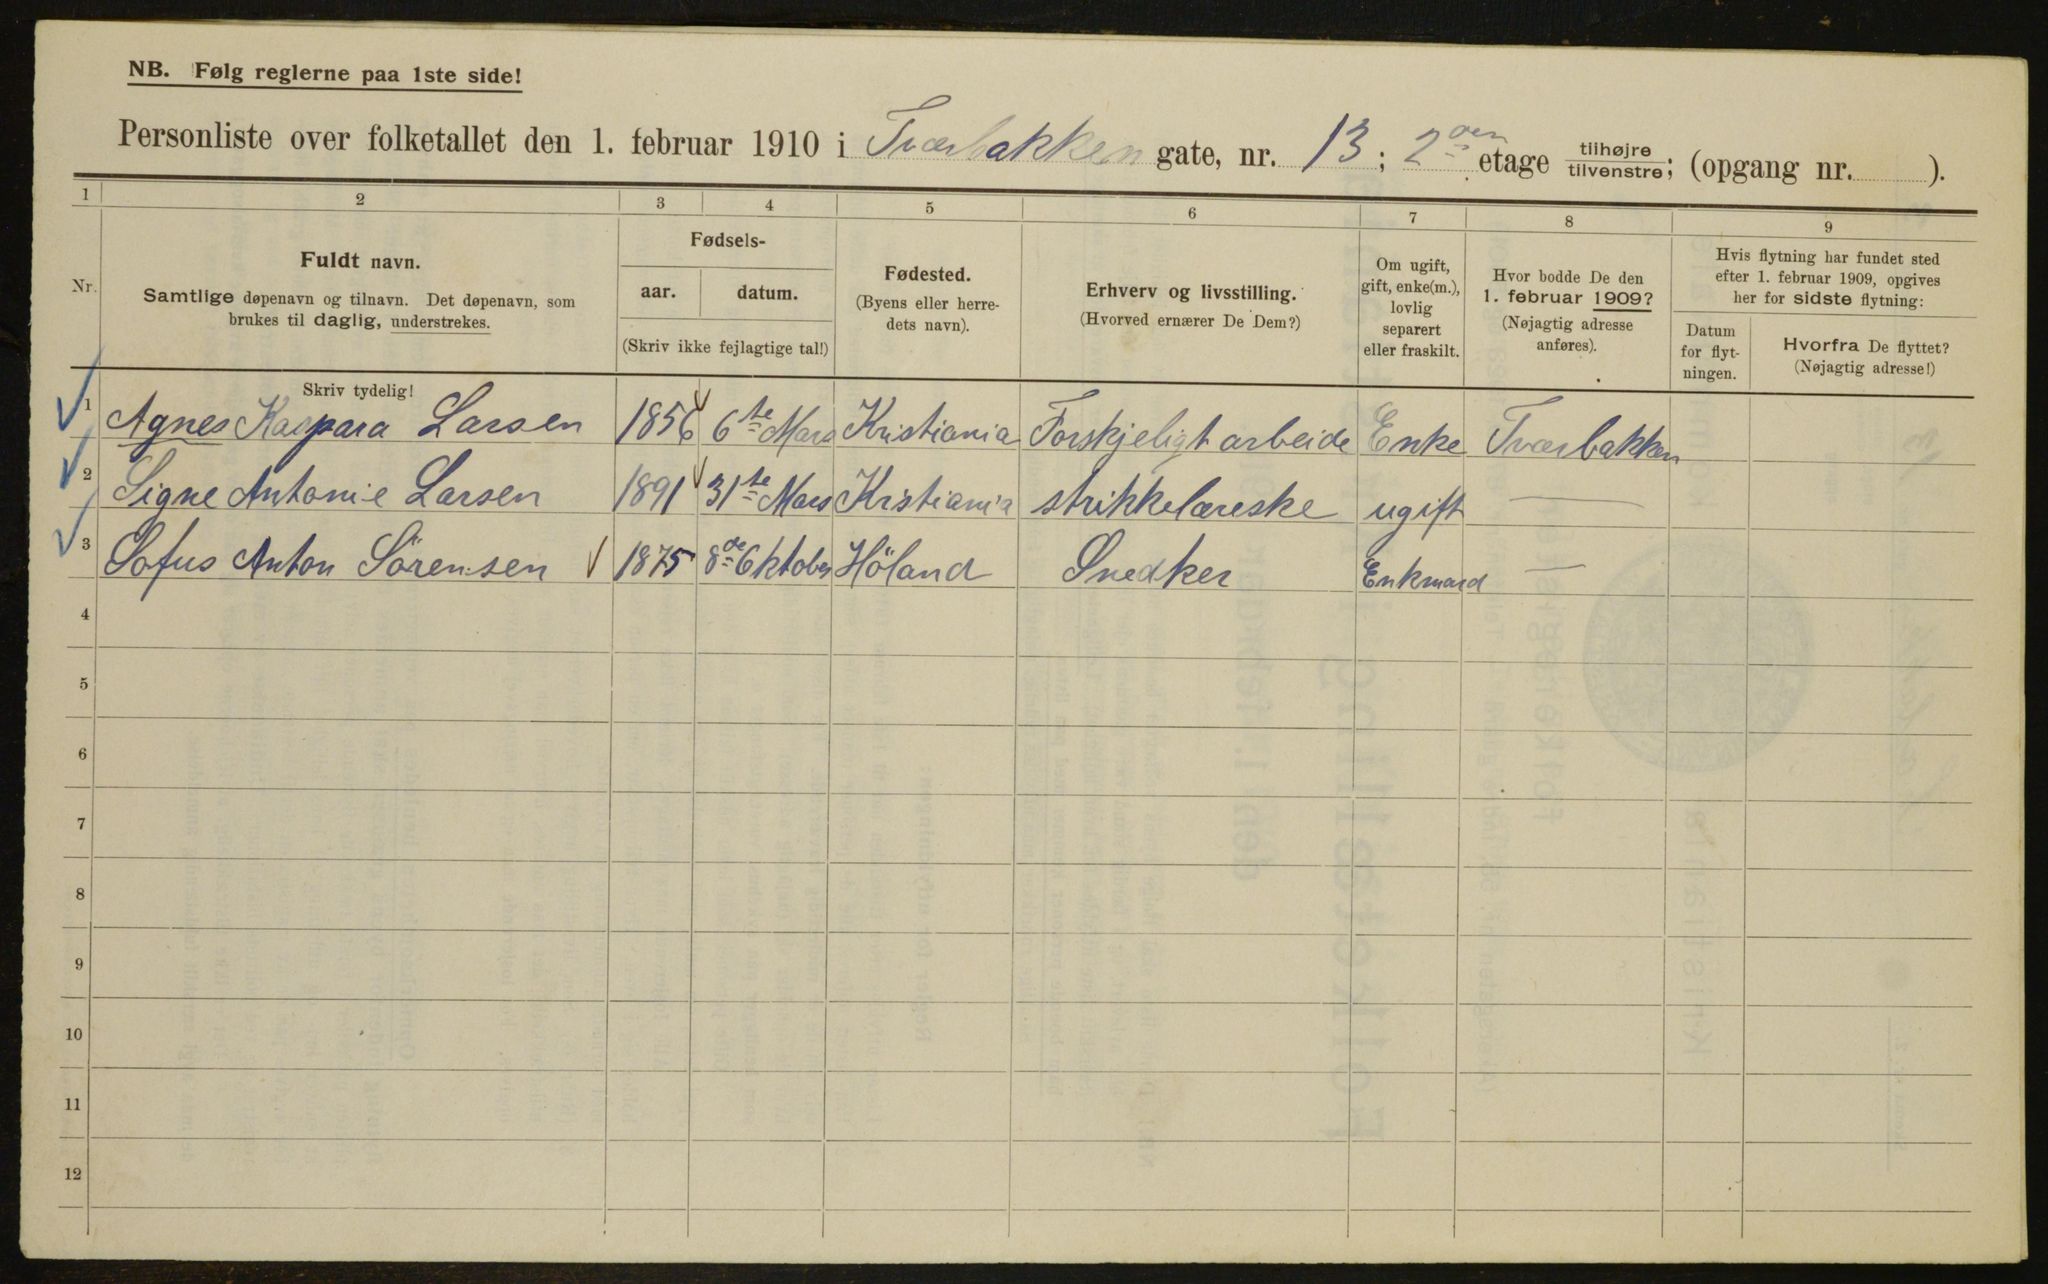 NB. Følg reglerne paa 1ste side!
Personliste over folketallet den 1. februar 1910 i Tværbakken gate, nr. 13; 2den etage tilhøjre/tilvenstre; (opgang nr. ).
1 2 3 4 5 6 7 8 9
Nr.
Fuldt navn.
Samtlige døpenavn og tilnavn. Det døpenavn, som
brukes til daglig, understrekes.
Skriv tydelig!
Fødsels-
aar. datum.
(Skriv ikke fejlagtige tal!)
Fødested.
(Byens eller herre-
dets navn).
Erhverv og livsstilling.
(Hvorved ernærer De Dem?)
Om ugift,
gift, enke(m.),
lovlig
separert
eller fraskilt.
Hvor bodde De den
1. februar 1909?
(Nøjagtig adresse
anføres).
Hvis flytning har fundet sted
efter 1. februar 1909, opgives
her for sidste flytning:
Datum
for flyt-
ningen.
Hvorfra De flyttet?
(Nøjagtig adresse!)
1 Agnes Kaspara Larsen 1856 6te Mars Kristiania Forskjeligt arbeide Enke Tværbakken
2 Signe Antonie Larsen 1891 31te Mars Kristiania strikkelæreske ugift —
3 Sofus Anton Sörensen 1875 8de Oktober Höland Snedker Enkmand —
4
5
6
7
8
9
10
11
12